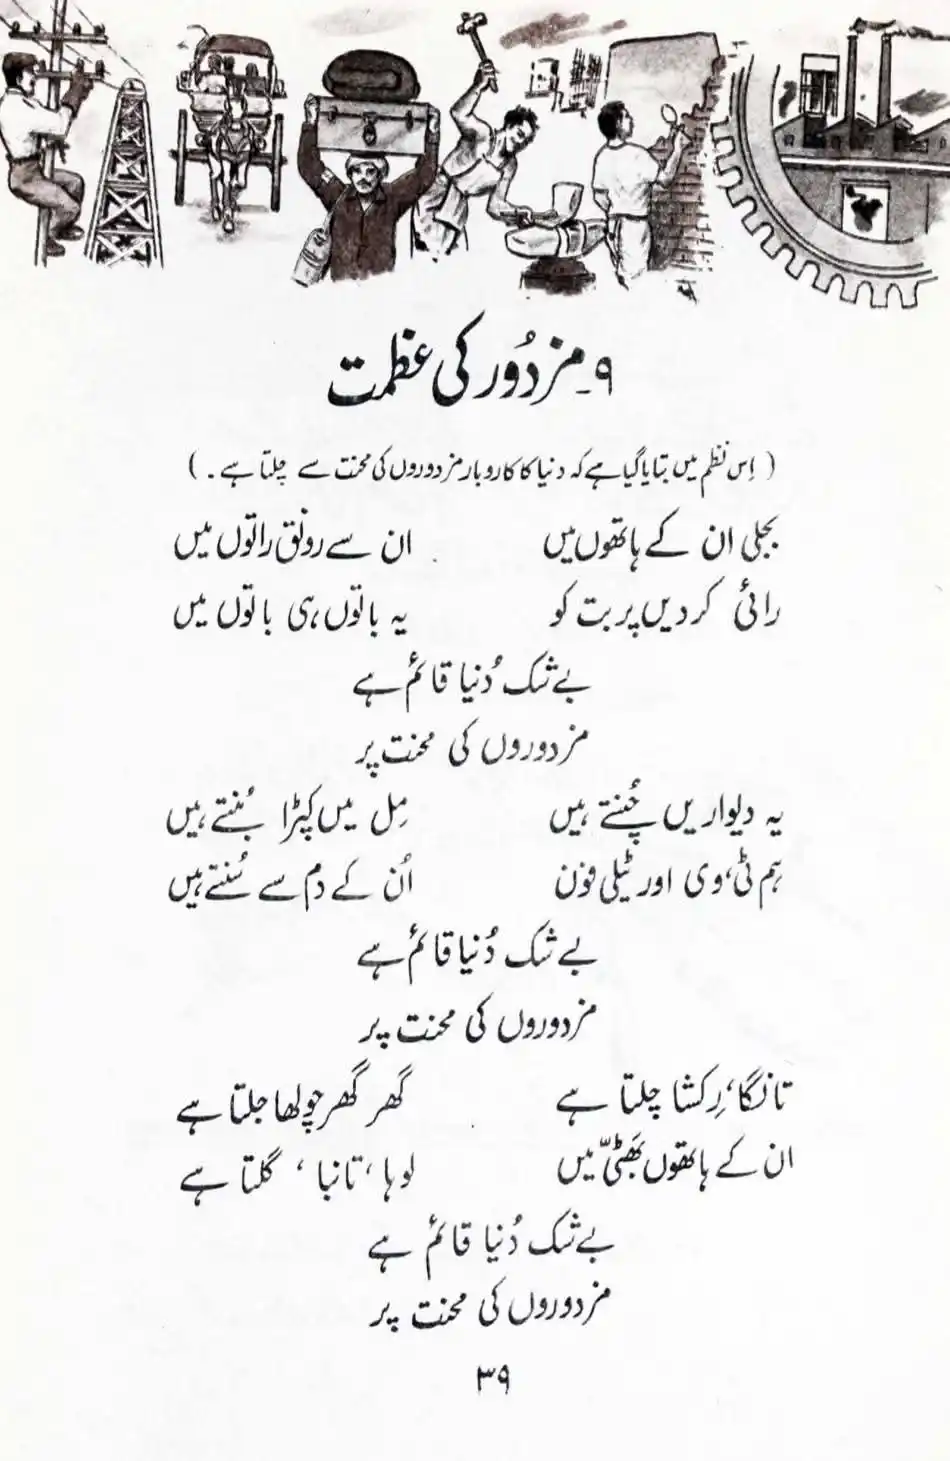 ۹۔ مزدُور کی عظمت
( اِس نظم میں بتایا گیا ہے کہ دنیا کا کاروبار مزدوروں کی محنت سے چلتا ہے ۔ )
بجلی ان کے ہاتھوں میں ان سے رونق راتوں میں
رائی کر دیں پربت کو یہ باتوں ہی باتوں میں
بے شک دُنیا قائم ہے
مزدوروں کی محنت پر
یہ دیواریں چُنتے ہیں مِل میں کپڑا بُنتے ہیں
ہم ٹی، وی اور ٹیلی فون اُن کے دم سے سُنتے ہیں
بے شک دُنیا قائم ہے
مزدوروں کی محنت پر
تانگا، رِکشا چلتا ہے گھر گھر چولھا جلتا ہے
ان کے ہاتھوں بھَٹّی میں لوہا، تانبا، گلتا ہے
بے شک دُنیا قائم ہے
مزدوروں کی محنت پر
۳۹